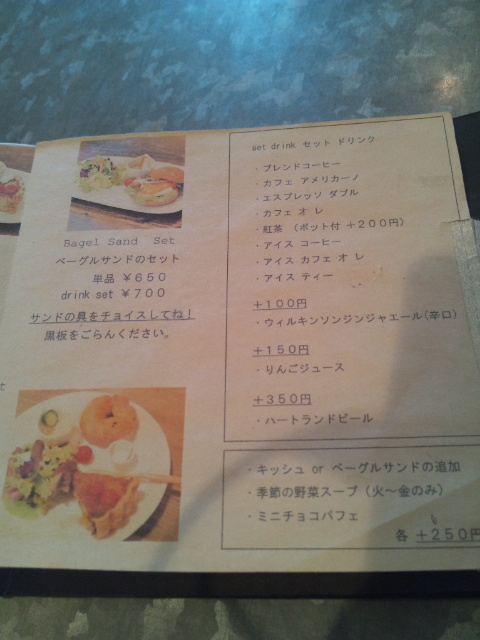 Bagel Sand Set
ベーグルサンドのセット
単品 ￥650
drink set ￥700
サンドの具をチョイスしてね!
黒板をごらんください。
t
set drink セット ドリンク
・ブレンドコーヒー
・カフェ アメリカーノ
・エスプレッソ ダブル
・カフェ オ レ
・紅茶 (ポット付 +200円)
・アイス コーヒー
・アイス カフェ オ レ
・アイス ティー
+100円
・ウィルキンソンジンジャエール(辛口)
+150円
・りんごジュース
+350円
・ハートランドビール
・キッシュ or ベーグルサンドの追加
・季節の野菜スープ (火～金のみ)
・ミニチョコパフェ
各 +250円